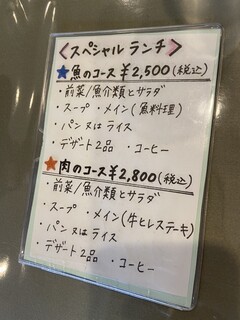 <スペシャル ランチ>
★魚のコース ¥2,500(税込)
・前菜/魚介類とサラダ
・スープ ・メイン(魚料理)
・パン又はライス
・デザート2品 ・コーヒー
★肉のコース ¥2,800(税込)
・前菜/魚介類とサラダ
・スープ ・メイン(牛ヒレステーキ)
・パン又はライス
・デザート2品 ・コーヒー